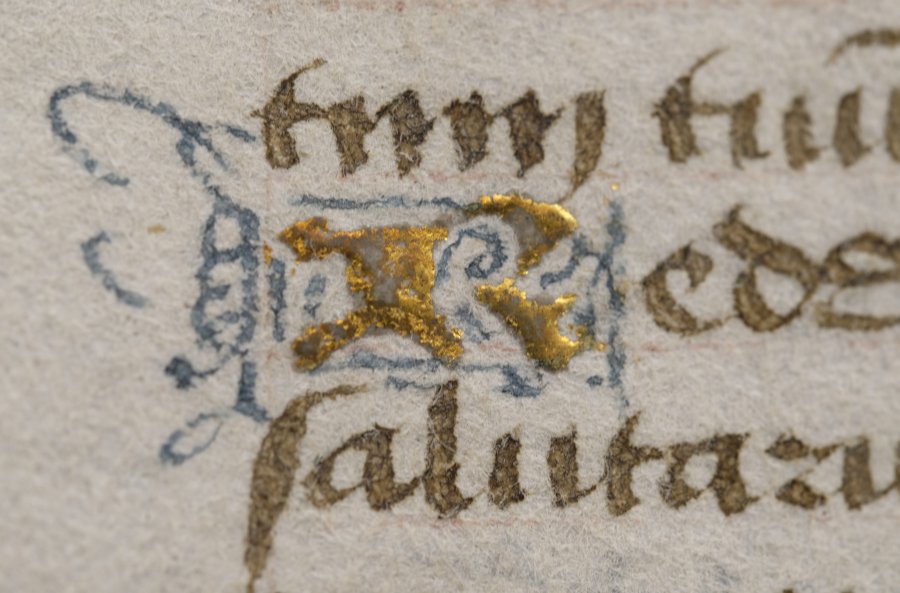 tum tuū
Redd
ſalutari